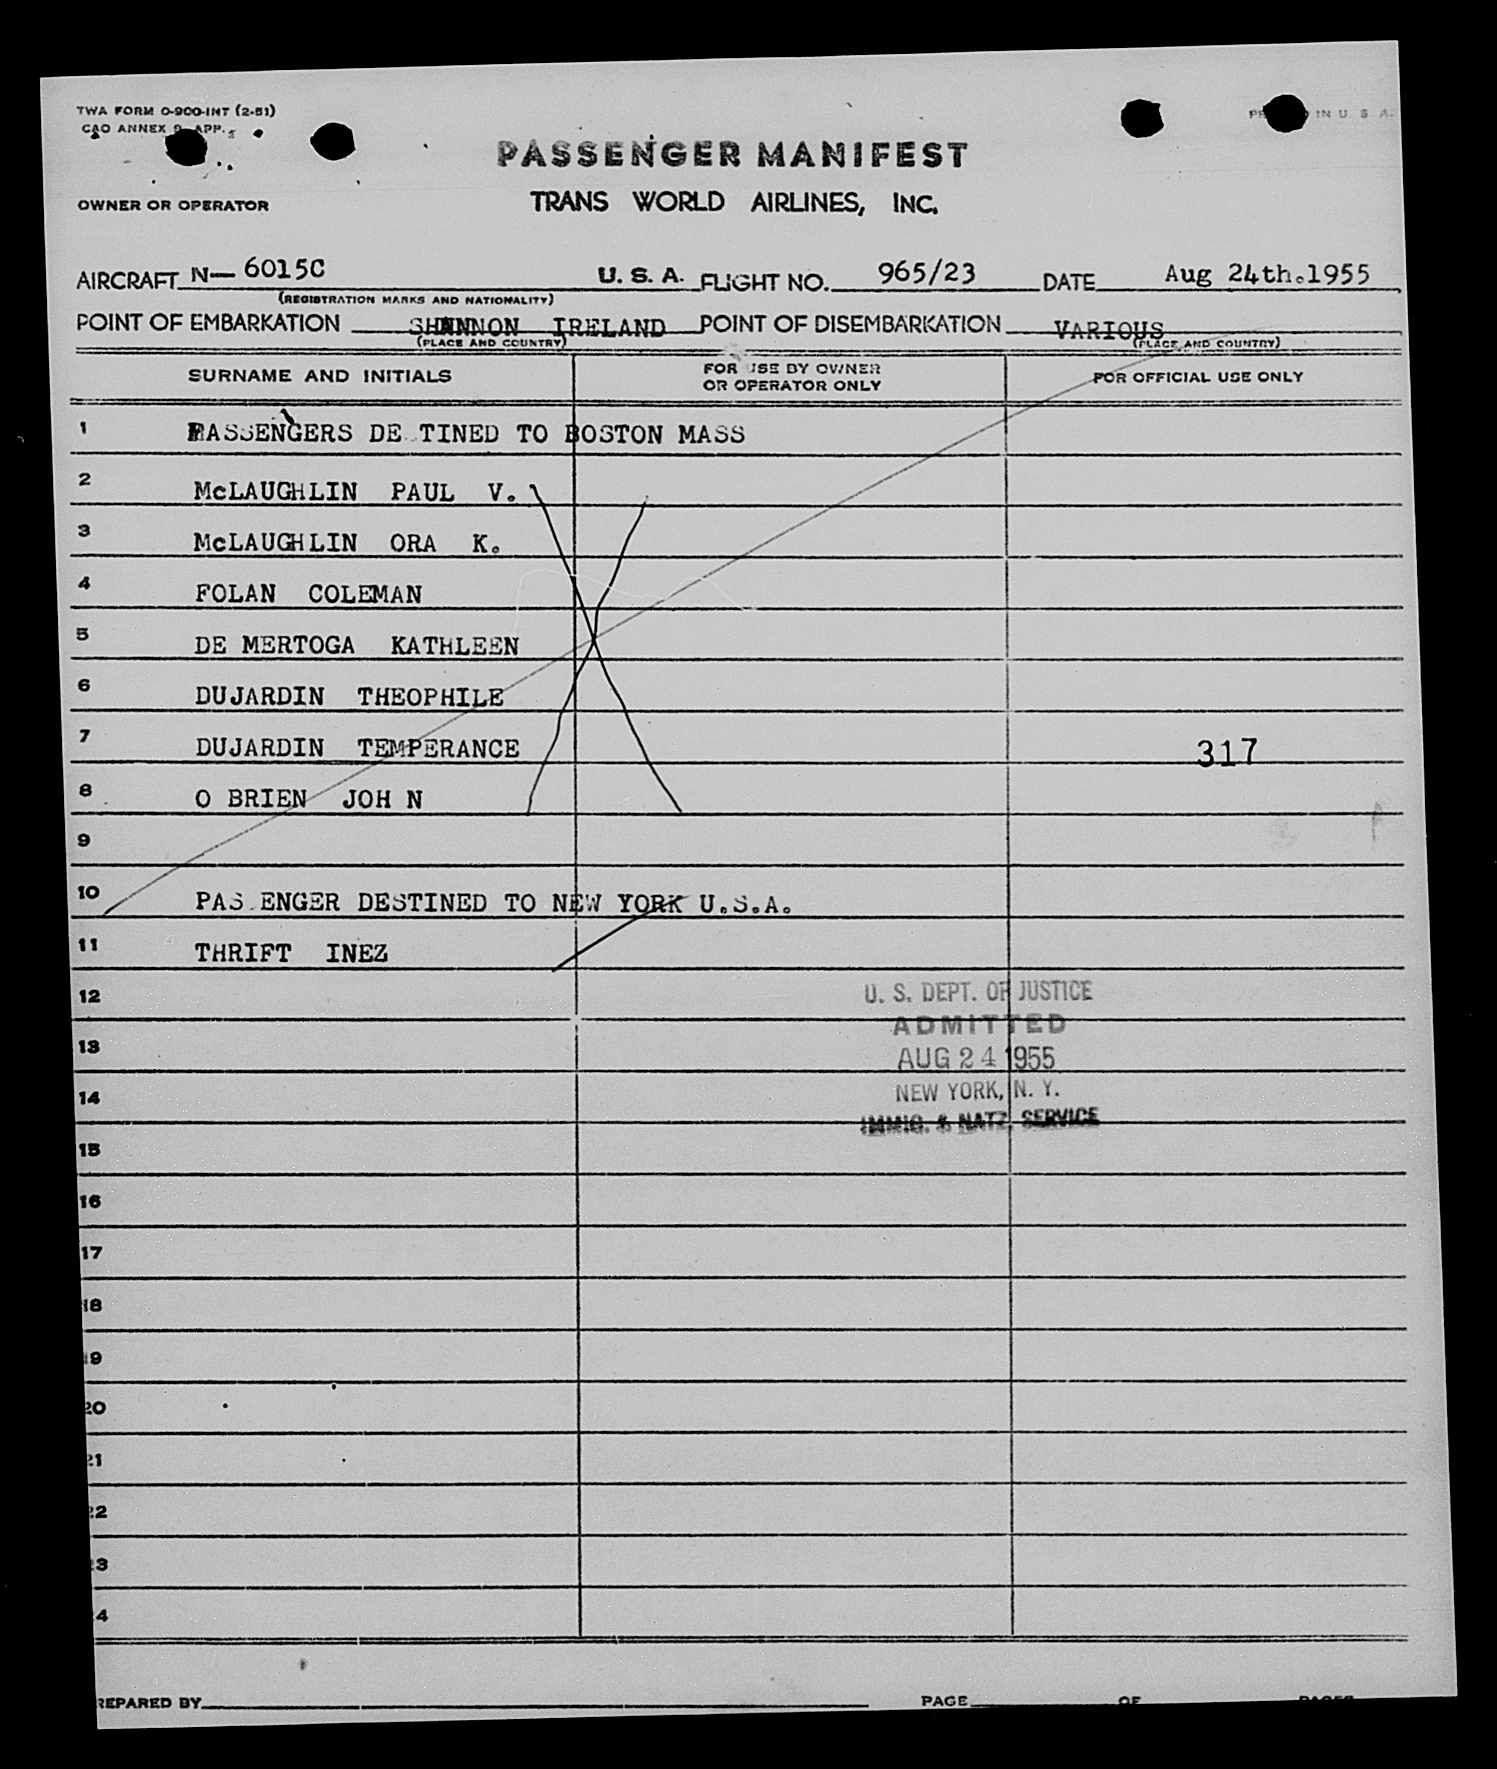 TWA FORM O-900-INT (2-51)
CAO ANNEX 9 APP.
IN U. S. A.
PASSENGER MANIFEST
OWNER OR OPERATOR
TRANS WORLD AIRLINES, INC.
AIRCRAFT N— 6015C U. S. A. FLIGHT NO. 965/23 DATE Aug 24th.1955
(REGISTRATION MARKS AND NATIONALITY)
POINT OF EMBARKATION SHANNON IRELAND POINT OF DISEMBARKATION VARIOUS
(PLACE AND COUNTRY) (PLACE AND COUNTRY)
SURNAME AND INITIALS FOR USE BY OWNER OR OPERATOR ONLY FOR OFFICIAL USE ONLY
1 PASSENGERS DE TINED TO BOSTON MASS
2 McLAUGHLIN PAUL V.
3 McLAUGHLIN ORA K.
4 FOLAN COLEMAN
5 DE MERTOGA KATHLEEN
6 DUJARDIN THEOPHILE
7 DUJARDIN TEMPERANCE 317
8 O BRIEN JOH N
9
10 PAS ENGER DESTINED TO NEW YORK U.S.A.
11 THRIFT INEZ
12 U. S. DEPT. OF JUSTICE
ADMITTED
13 AUG 24 1955
14 NEW YORK, N. Y.
IMMIG. & NATZ. SERVICE
15
16
17
18
19
20
21
22
23
24
PREPARED BY PAGE OF PAGES